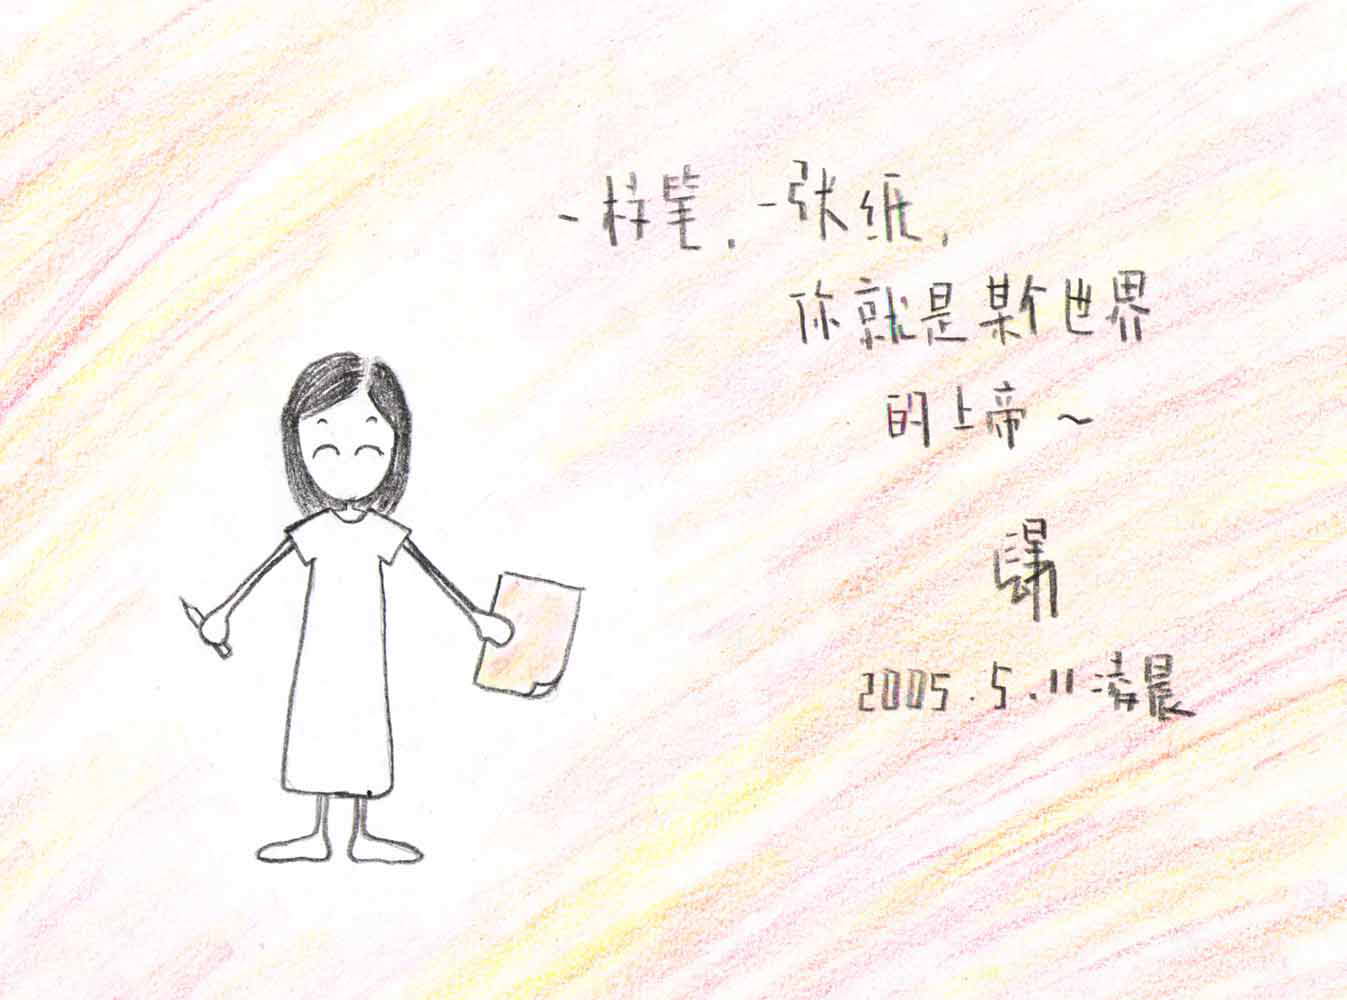 一枝笔，一张纸，
你就是某个世界
的上帝～
2005.5.11凌晨